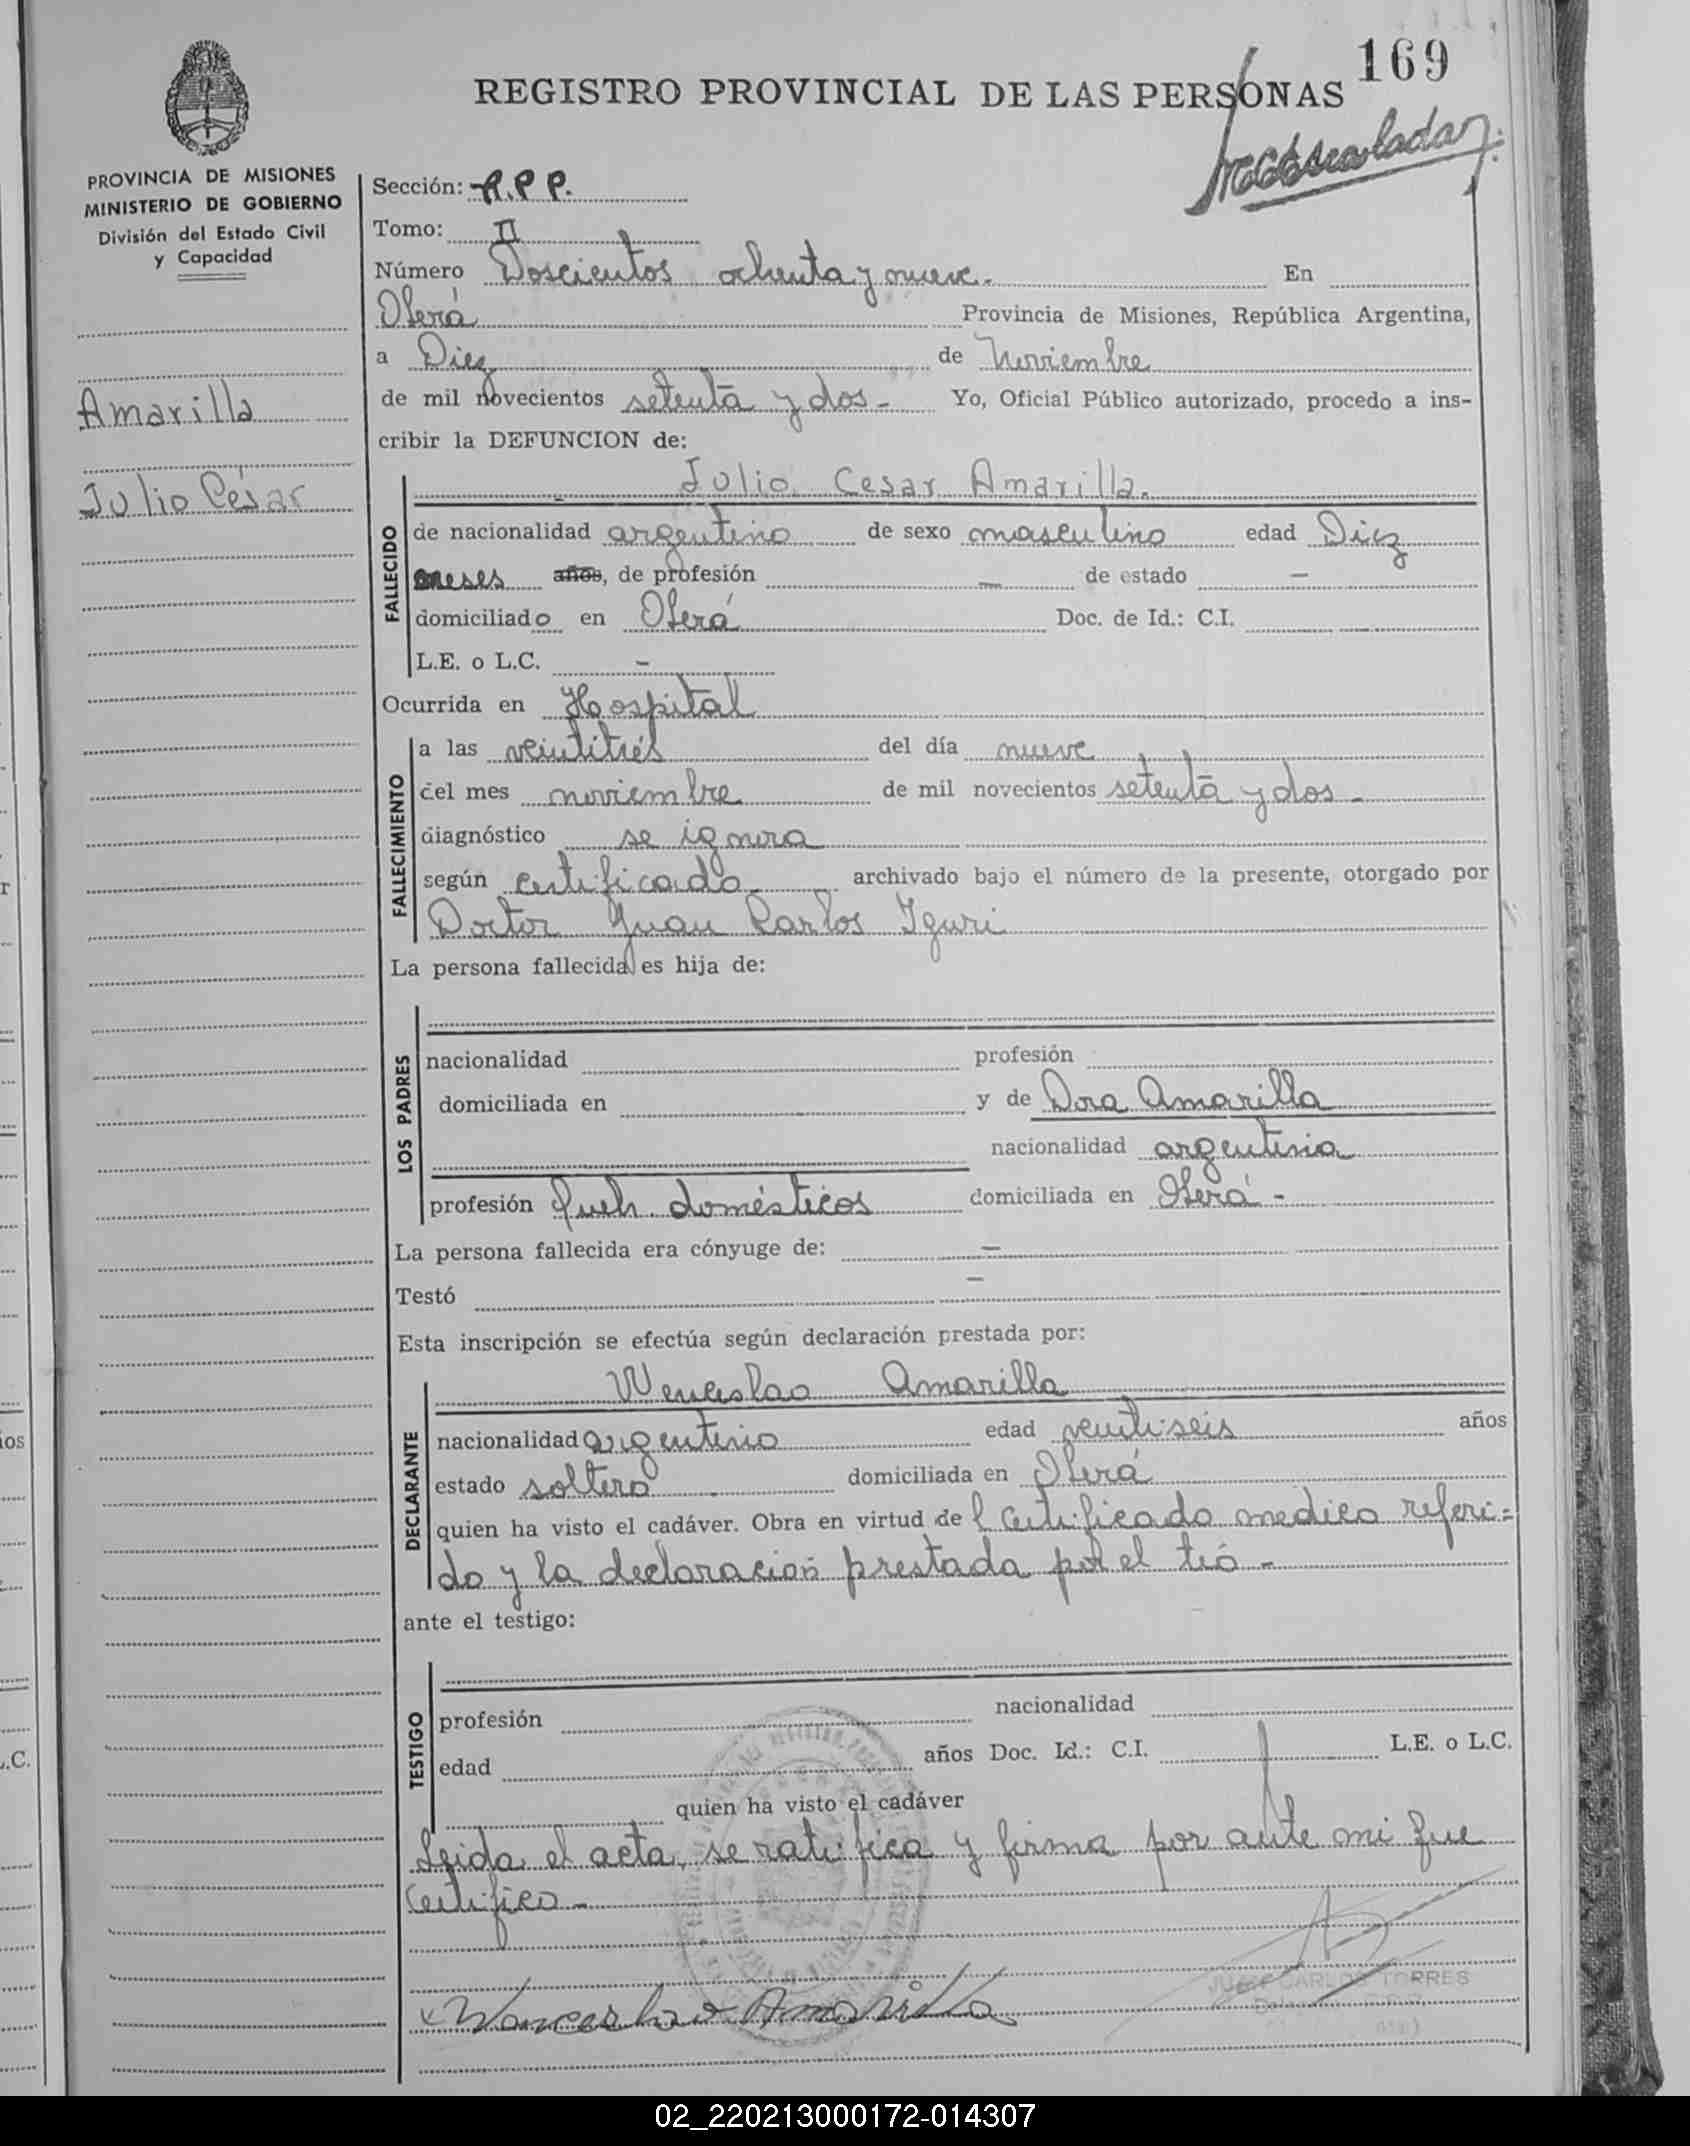 169
REGISTRO PROVINCIAL DE LAS PERSONAS
PROVINCIA DE MISIONES
MINISTERIO DE GOBIERNO
División del Estado Civil
y Capacidad
Amarilla
Julio César
Sección: R.P.P.
Tomo: II
Número Doscientos ochenta y nueve.- En
Oberá Provincia de Misiones, República Argentina,
a Diez de Noviembre
de mil novecientos setenta y dos - Yo, Oficial Público autorizado, procedo a ins-
cribir la DEFUNCION de:
Julio Cesar Amarilla.
FALLECIDO
de nacionalidad argentino de sexo masculino edad Diez
meses años, de profesión — de estado —
domiciliado en Oberá Doc. de Id.: C.I.
L.E. o L.C. -
Ocurrida en Hospital
FALLECIMIENTO
a las veintitrés del día nueve
del mes noviembre de mil novecientos setenta y dos -
diagnóstico se ignora
según certificado archivado bajo el número de la presente, otorgado por
Doctor Juan Carlos Iguri
La persona fallecida es hija de:
LOS PADRES
nacionalidad profesión
domiciliada en y de Dora Amarilla
nacionalidad argentina
profesión queh. domésticos domiciliada en Oberá -
La persona fallecida era cónyuge de: —
Testó —
Esta inscripción se efectúa según declaración prestada por:
Wenceslao Amarilla
DECLARANTE
nacionalidad argentino edad veintiseis años
estado soltero domiciliada en Oberá
quien ha visto el cadáver. Obra en virtud del certificado medico referi-
do y la declaracion prestada por el tió -
ante el testigo:
TESTIGO
profesión nacionalidad
edad años Doc. Id.: C.I. L.E. o L.C.
quien ha visto el cadáver
Leida el acta, se ratifica y firma por ante mi que
certifico -
Wenceslao Amarilla
JUAN CARLOS TORRES
02_220213000172-014307